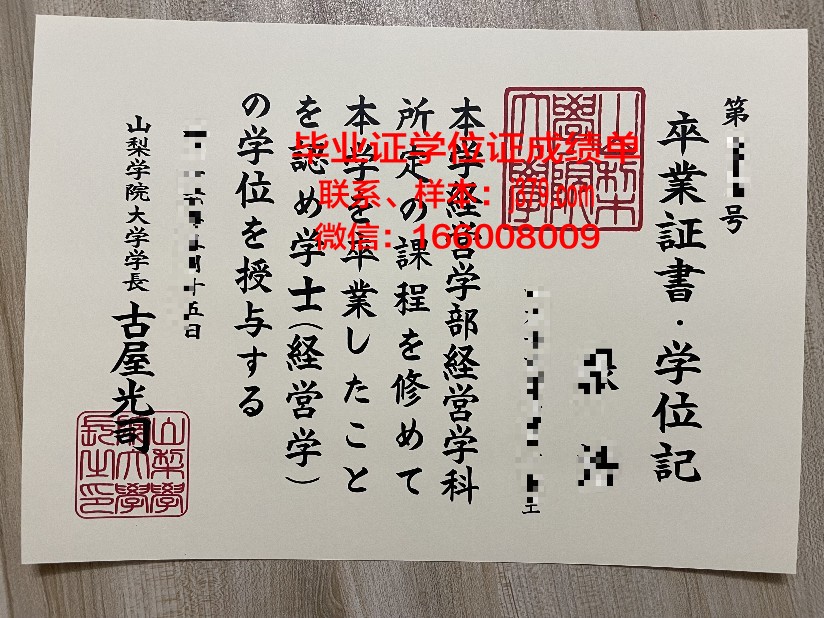 第
号
卒業証書・学位記
山梨
學院
大學
本学経営学部経営学科
所定の課程を修めて
本学を卒業したこと
を認め学士(経営学)
の学位を授与する
十五日
山梨学院大学学長 古屋光司
山梨學
院大學
長之印
毕业证学位证成绩单
微信：166008009